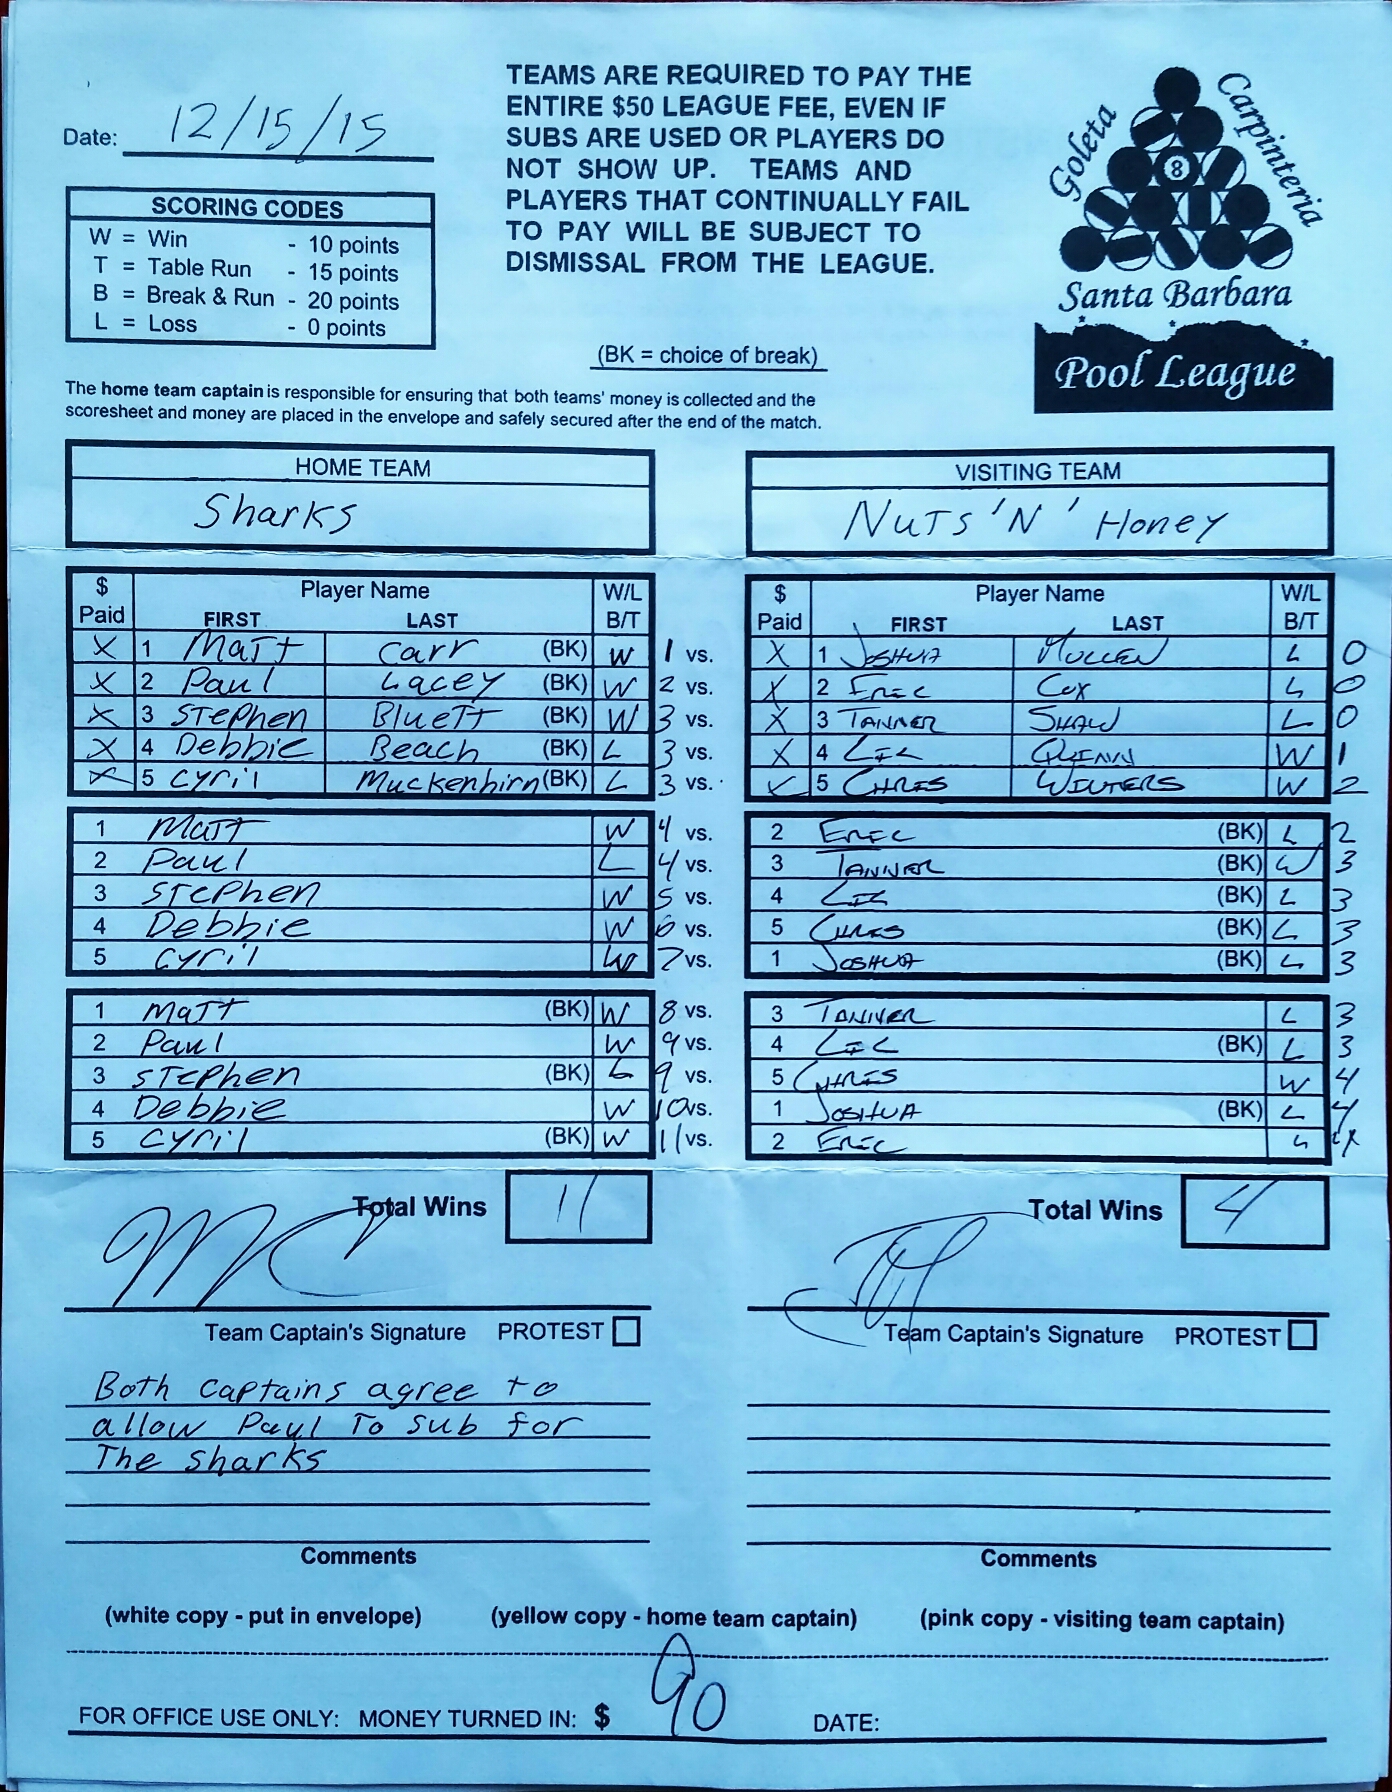 TEAMS ARE REQUIRED TO PAY THE
ENTIRE $50 LEAGUE FEE, EVEN IF
SUBS ARE USED OR PLAYERS DO
NOT SHOW UP. TEAMS AND
PLAYERS THAT CONTINUALLY FAIL
TO PAY WILL BE SUBJECT TO
DISMISSAL FROM THE LEAGUE.
Date: 12/15/15
SCORING CODES
W = Win - 10 points
T = Table Run - 15 points
B = Break & Run - 20 points
L = Loss - 0 points
(BK = choice of break)
Goleta
Carpinteria
8
Santa Barbara
Pool League
The home team captain is responsible for ensuring that both teams' money is collected and the
scoresheet and money are placed in the envelope and safely secured after the end of the match.
HOME TEAM
Sharks
VISITING TEAM
NUTS 'N' Honey
$ Player Name W/L $ Player Name W/L
Paid FIRST LAST B/T Paid FIRST LAST B/T
X 1 Matt Carr (BK) W 1 vs. X 1 JOSHUA MULLEN L 0
X 2 Paul Lacey (BK) W 2 vs. X 2 ERIC COX L 0
X 3 Stephen Bluett (BK) W 3 vs. X 3 TANNER SHAW L 0
X 4 Debbie Beach (BK) L 3 vs. X 4 LIL QUINN W 1
X 5 Cyril Muckenhirn (BK) L 3 vs. 5 CHRIS WINTERS W 2
1 Matt W 4 vs. 2 ERIC (BK) L 2
2 Paul L 4 vs. 3 TANNER (BK) W 3
3 Stephen W 5 vs. 4 LIL (BK) L 3
4 Debbie W 6 vs. 5 CHRIS (BK) L 3
5 Cyril W 7 vs. 1 JOSHUA (BK) L 3
1 Matt (BK) W 8 vs. 3 TANNER L 3
2 Paul W 9 vs. 4 LIL (BK) L 3
3 Stephen (BK) L 9 vs. 5 CHRIS W 4
4 Debbie W 10 vs. 1 JOSHUA (BK) L 4
5 Cyril (BK) W 11 vs. 2 ERIC L 4
Total Wins 11
Total Wins 4
Team Captain's Signature PROTEST
Team Captain's Signature PROTEST
Both captains agree to
allow Paul To sub for
The sharks
Comments
Comments
(white copy - put in envelope) (yellow copy - home team captain) (pink copy - visiting team captain)
FOR OFFICE USE ONLY: MONEY TURNED IN: $ 90 DATE: